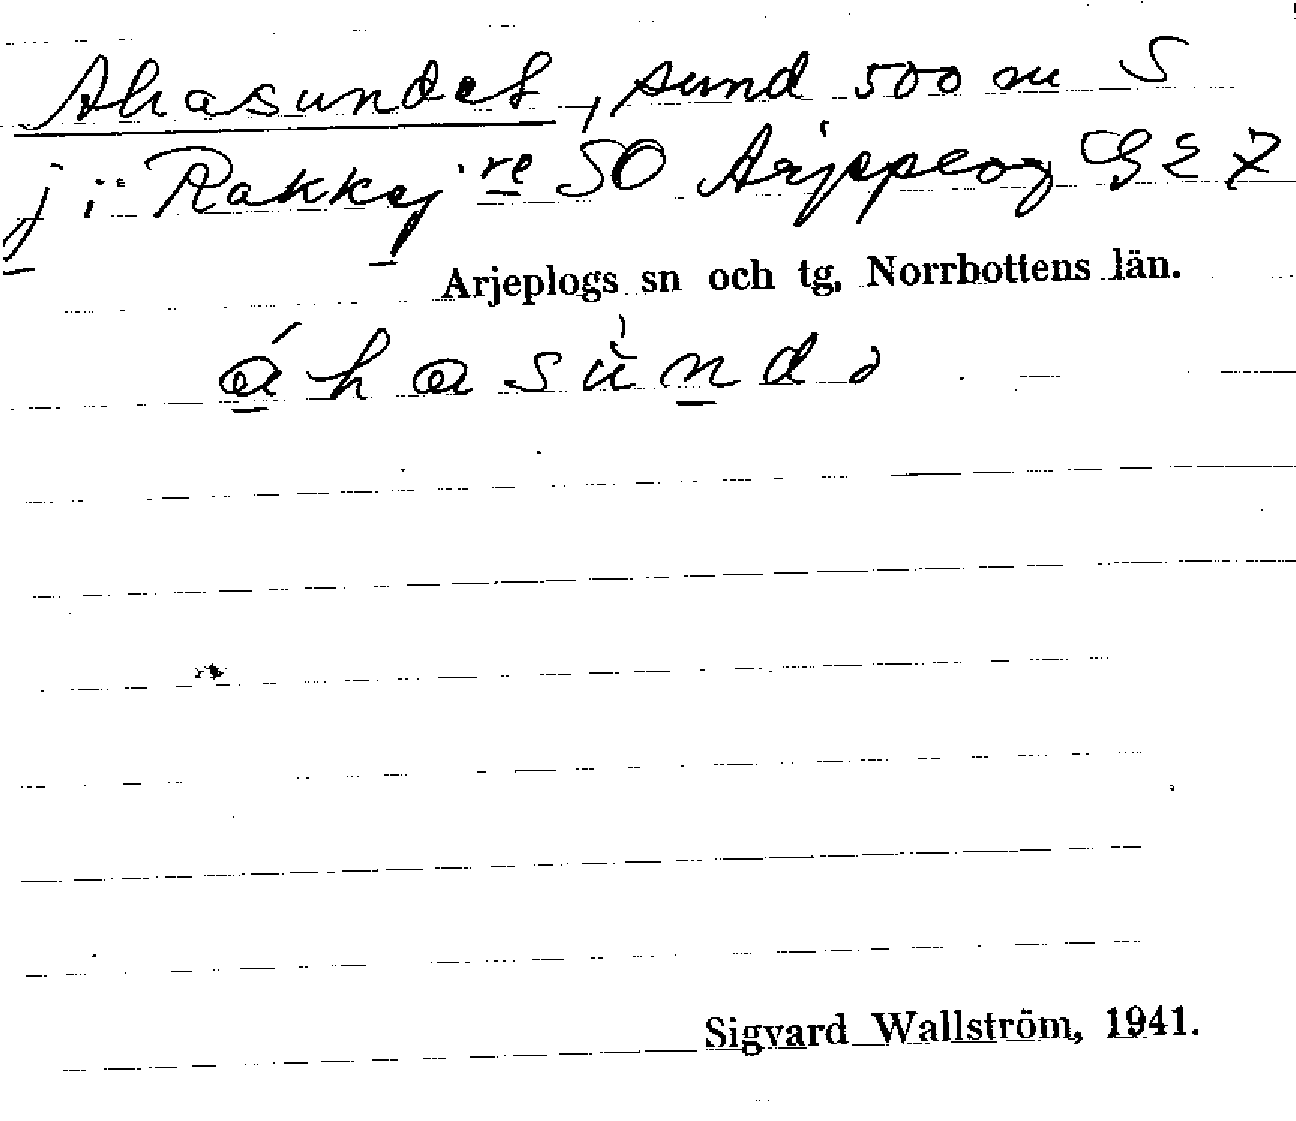 Ahasundet, sund 500 m S
j i Rakkejre SO Arjeplog G E Z
Arjeplogs sn och tg, Norrbottens län.
áhasùnd
Sigvard Wallström, 1941.